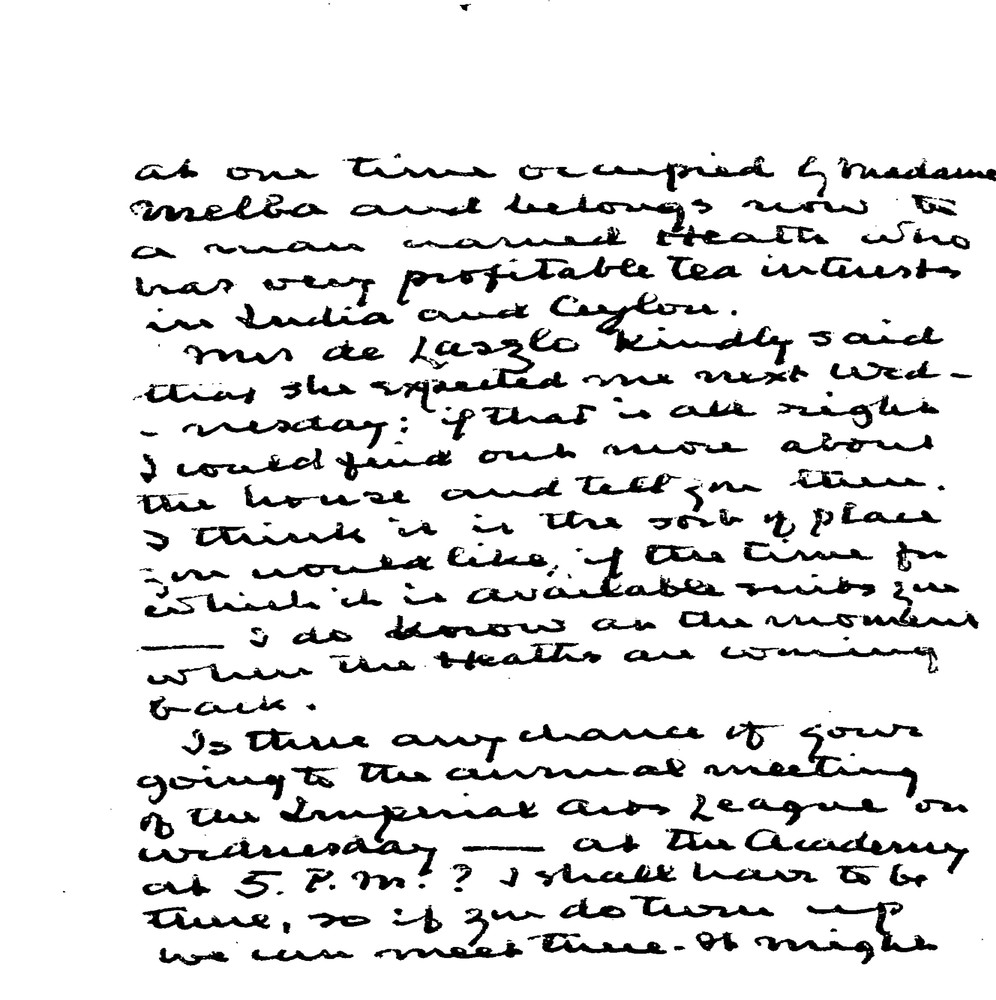 at one time occupied by Madame
Melba and belongs now to
a man named Heath who
has very profitable tea interests
in India and Ceylon.
Mrs de Laszlo kindly said
that she expected me next Wed-
- nesday: if that is all right
I could find out more about
the house and tell you then.
I think it is the sort of place
you would like, if the time for
which it is available suits you
— I do know at the moment
when the Heaths are coming
back.
Is there any chance of your
going to the annual meeting
of the Imperial Arts League on
Wednesday — at the Academy
at 5. P.M.? I shall have to be
there, so if you do turn up
we can meet there. It might